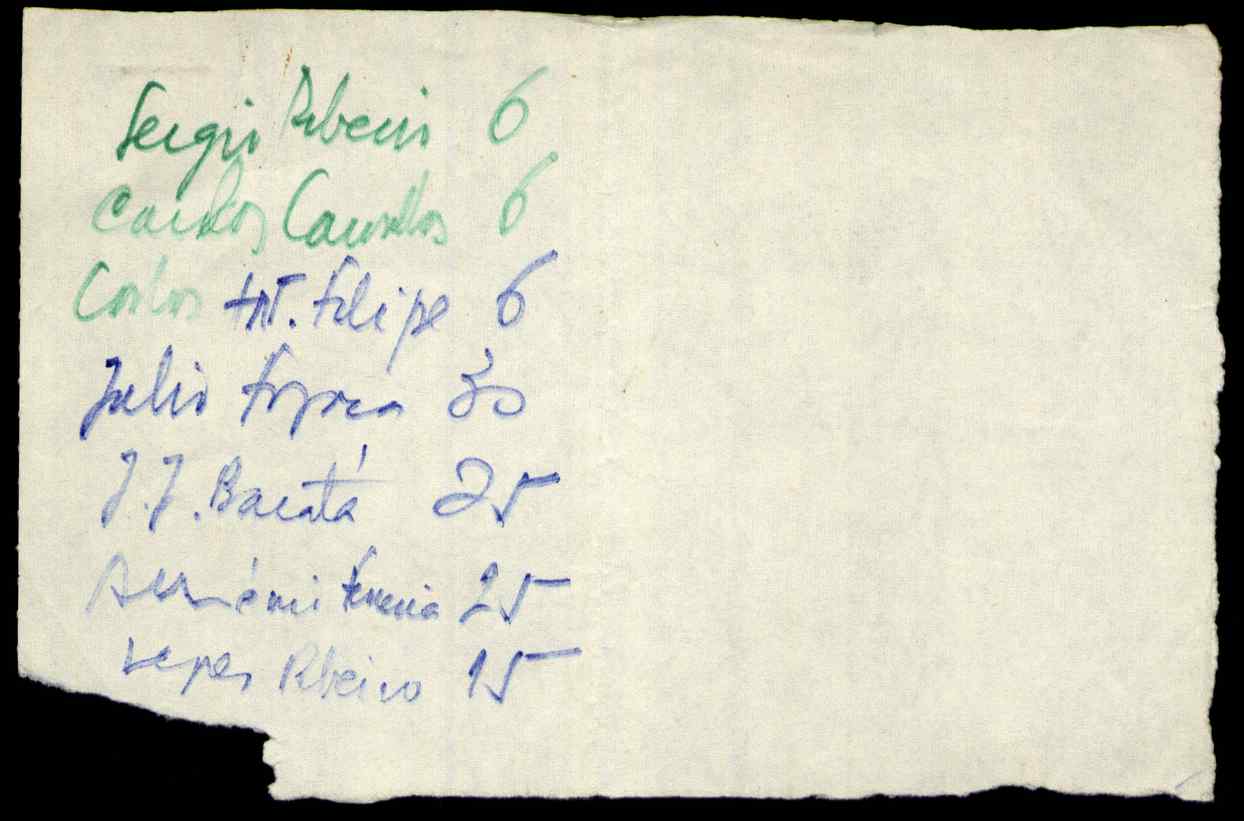 Sergio Ribeiro 6
Carlos Carvalhos 6
Carlos Ant. Filipe 6
Julio 30
J. J. Barata 25
25
Lopes Ribeiro 15